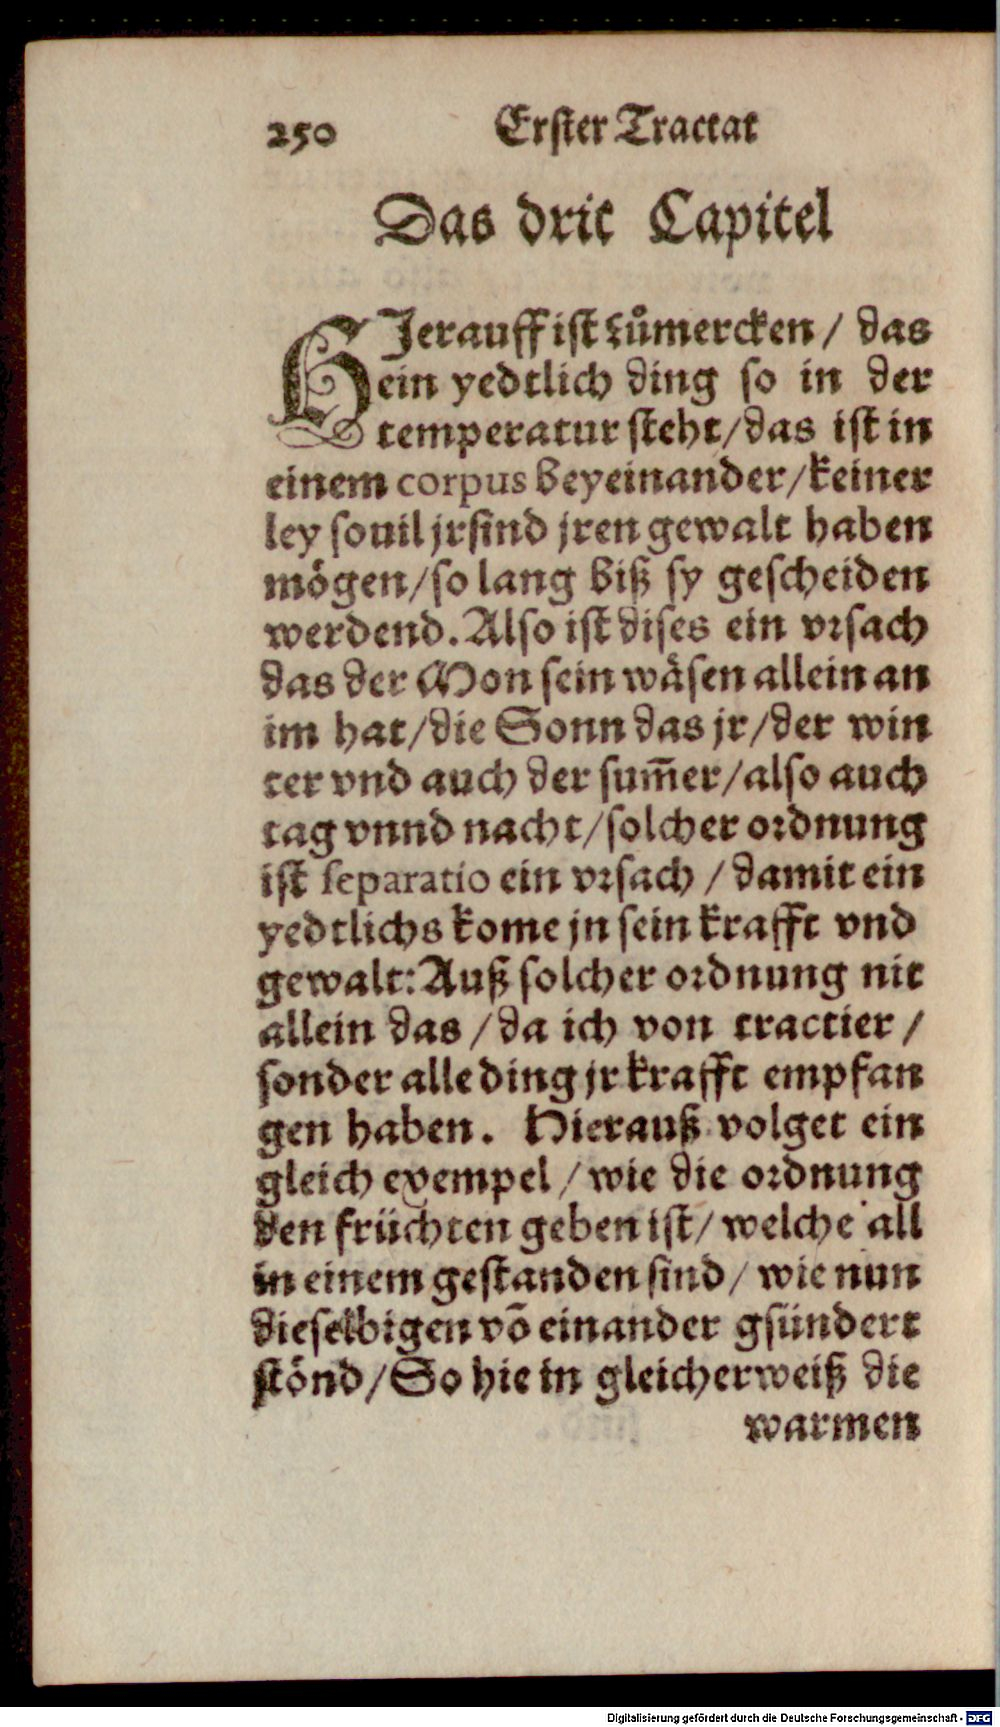 250 Erster Tractat
Das drit Capitel
HJerauff ist zůmercken / das
ein yedtlich ding so in der
temperatur steht / das ist in
einem corpus beyeinander / keiner
ley souil jr sind jren gewalt haben
mögen / so lang biß sy gescheiden
werdend. Also ist dises ein vrsach
das der Mon sein wäsen allein an
im hat / die Sonn das jr / der win
ter vnd auch der sum̄er / also auch
tag vnnd nacht / solcher ordnung
ist separatio ein vrsach / damit ein
yedtlichs kome jn sein krafft vnd
gewalt: Auß solcher ordnung nit
allein das / da ich von tractier /
sonder alle ding jr krafft empfan
gen haben. Hierauß volget ein
gleich exempel / wie die ordnung
den früchten geben ist / welche all
in einem gestanden sind / wie nun
dieselbigen võ einander gsündert
stönd / So hie in gleicherweiß die
warmen
Digitalisierung gefördert durch die Deutsche Forschungsgemeinschaft - DFG